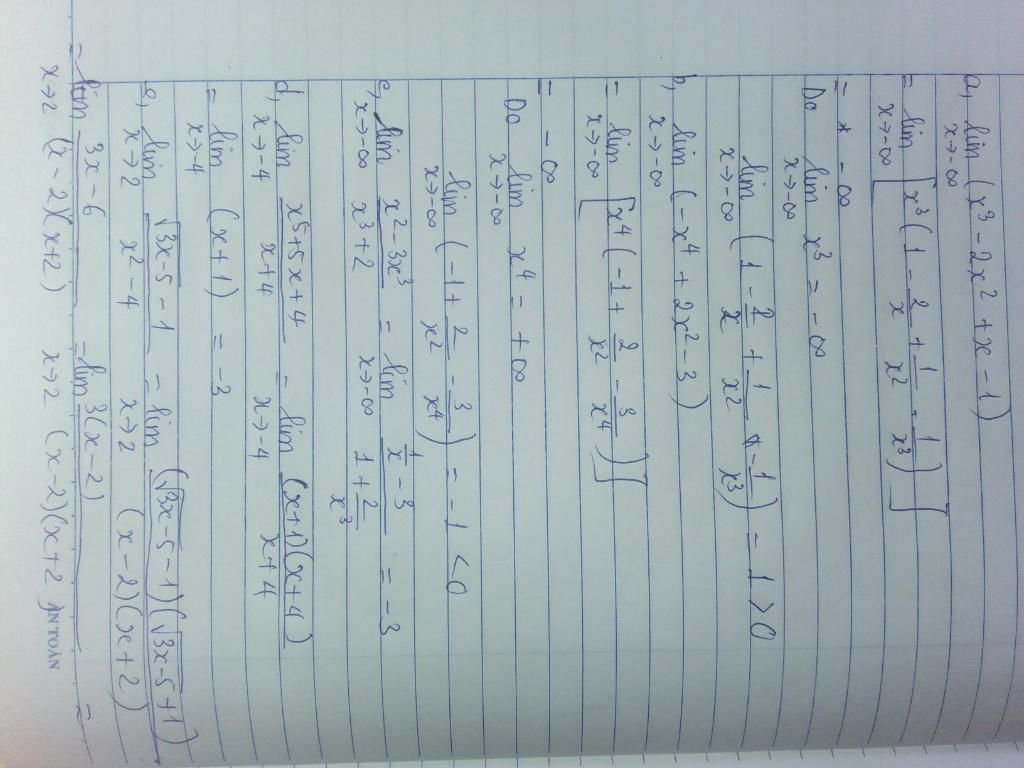 a, lim x→-∞ (x³ - 2x² + x - 1)
= lim x→-∞ [x³(1 - 2/x + 1/x² - 1/x³)]
= -∞
Do lim x→-∞ x³ = -∞
lim x→-∞ (1 - 2/x + 1/x² - 1/x³) = 1 > 0
b, lim x→-∞ (-x⁴ + 2x² - 3)
= lim x→-∞ [x⁴(-1 + 2/x² - 3/x⁴)]
= -∞
Do lim x→-∞ x⁴ = +∞
lim x→-∞ (-1 + 2/x² - 3/x⁴) = -1 < 0
c, lim x→-∞ (x² - 3x³)/(x³ + 2) = lim x→-∞ (1/x - 3)/(1 + 2/x³) = -3
d, lim x→-4 (x⁵ + 5x + 4)/(x + 4) = lim x→-4 (x+1)(x+4)/(x+4)
= lim x→-4 (x+1) = -3
e, lim x→2 (√3x-5 - 1)/(x² - 4) = lim x→2 (√3x-5 - 1)(√3x-5 + 1)/(x-2)(x+2)
= lim x→2 (3x - 6)/(x-2)(x+2) = lim x→2 3(x-2)/(x-2)(x+2) =